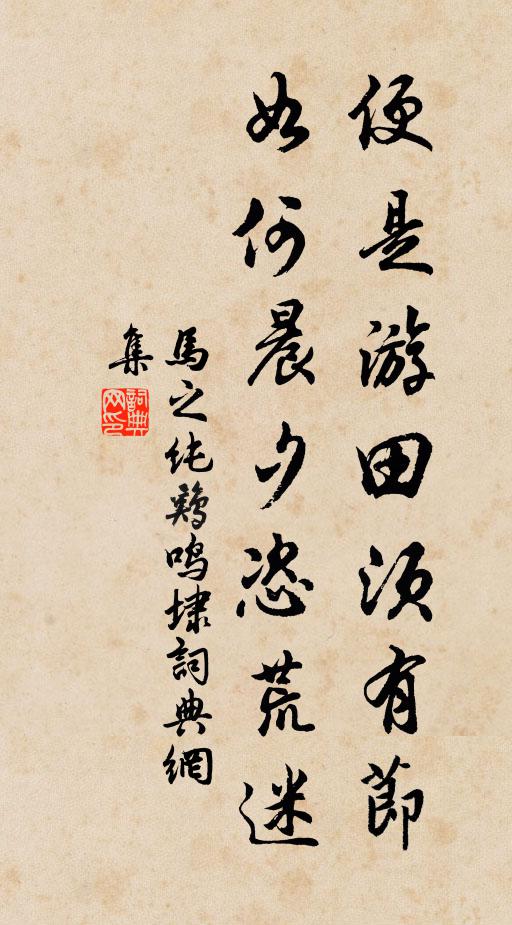 便是游田须有節
如何晨夕恣荒迷
馬之纯鷄鳴埭詞典網
集
詞典
网印